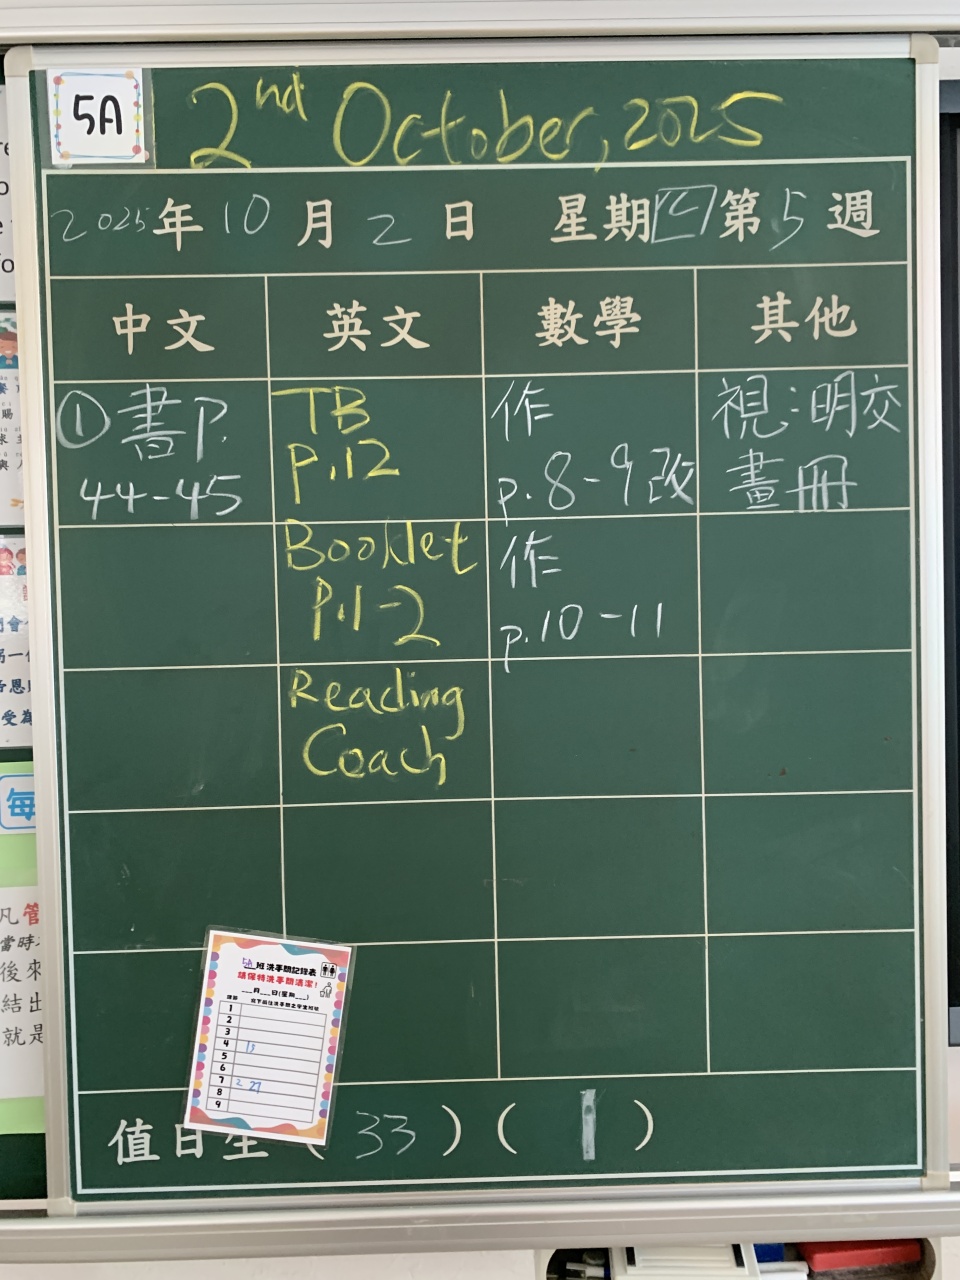 5A
2nd October, 2025
2025年10月2日 星期四第5週
中文 英文 數學 其他
①書P.
44-45
TB
p.12
作
p.8-9改
視:明交
畫冊
Booklet
P.1-2
作
p.10-11
Reading
Coach
5A班洗手間記錄表
請保持洗手間清潔!
__月__日(星期__)
1
2
3
4 15
5
6
7 2 27
8
9
值日生(33)(1)
每
凡管
當時
後來
結出
就是